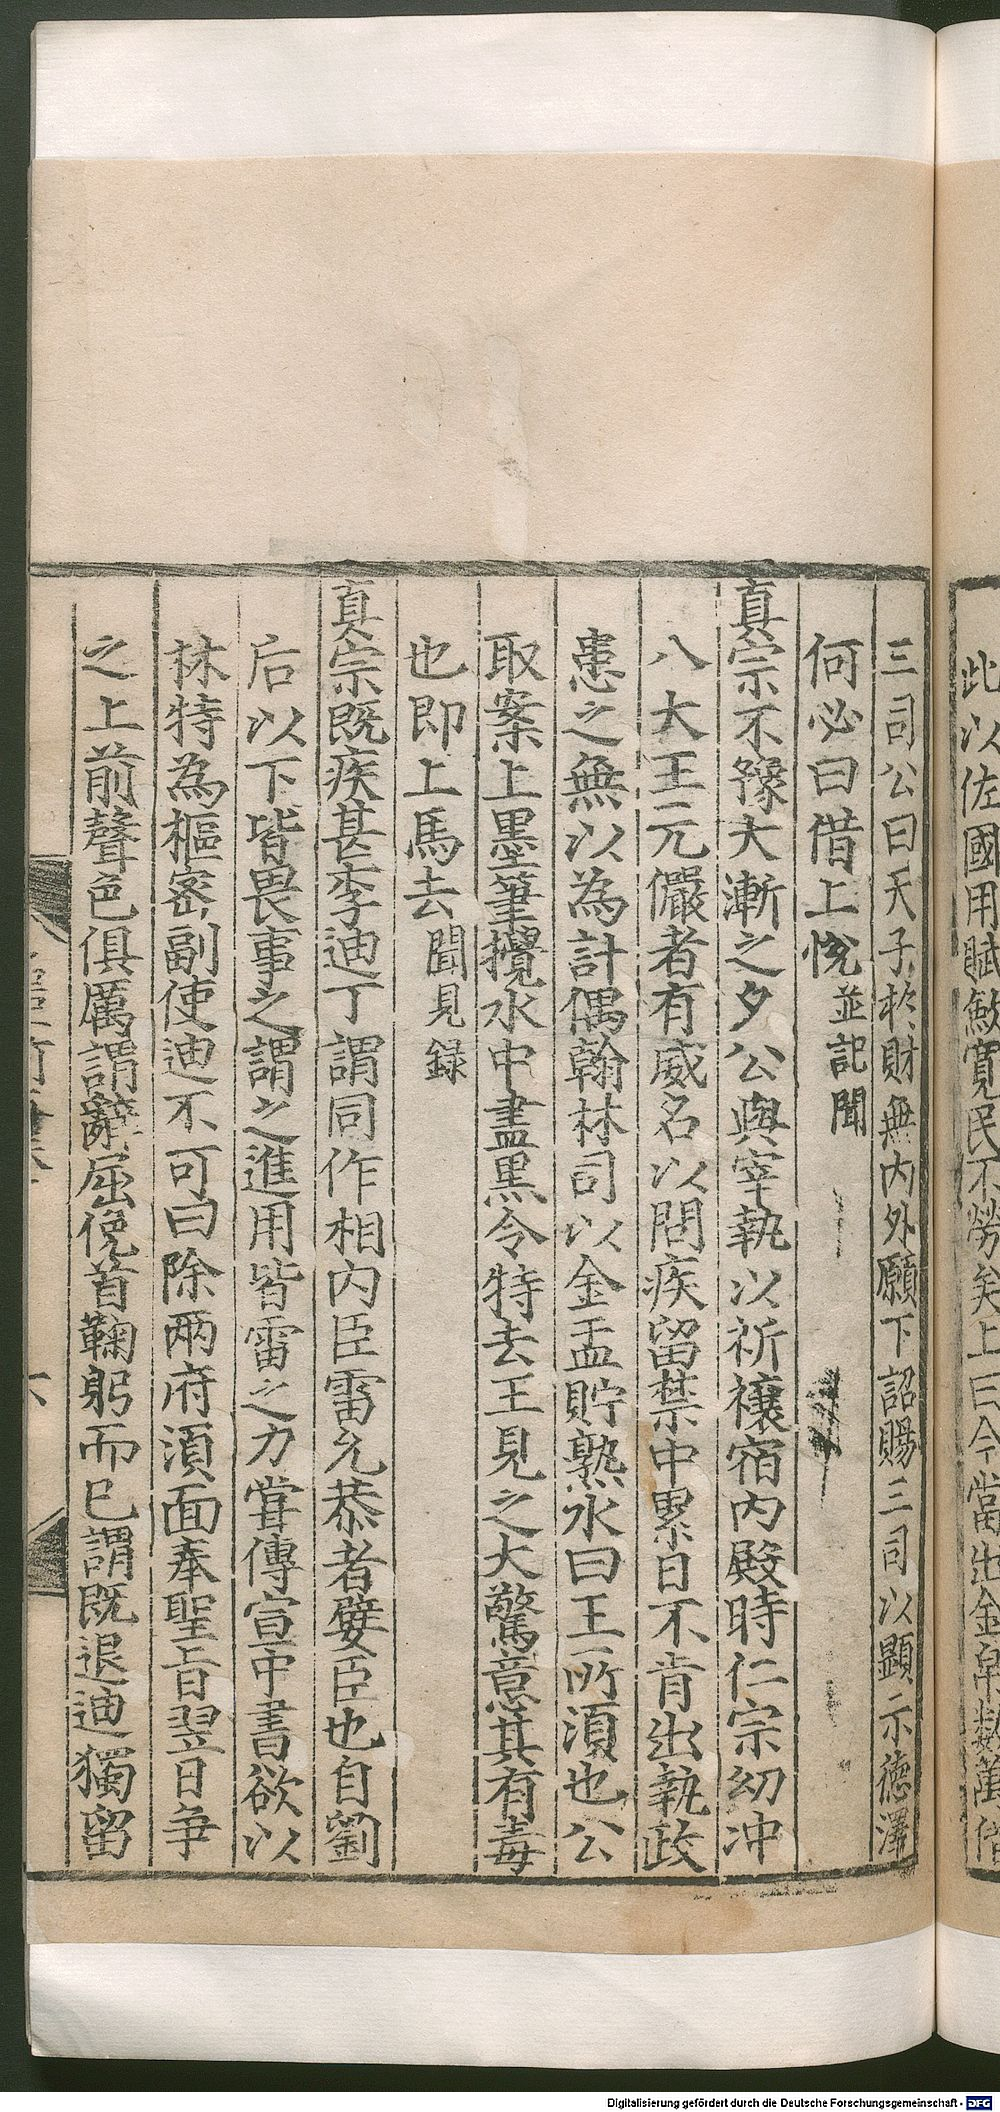 此以佐國用賦斂寛民不勞矣上曰今當出金帛數萬借
三司公曰天子於財無内外願下詔賜三司以顯示德澤
何必曰借上悅並記聞
真宗不豫大漸之夕公與宰執以祈禳宿内殿時仁宗幼冲
八大王元儼者有威名以問疾留禁中累日不肯出執政
患之無以為計偶翰林司以金盂貯熟水曰王所須也公
取案上墨筆攪水中盡黑令特去王見之大驚意其有毒
也即上馬去聞見録
真宗既疾甚李迪丁謂同作相内臣雷允恭者嬖臣也自劉
后以下皆畏事之謂之進用皆雷之力嘗傳宣中書欲以
林特為樞密副使迪不可曰除兩府須面奉聖旨翌日争
之上前聲色俱厲謂辭屈俛首鞠躬而已謂既退迪獨留
六
Digitalisierung gefördert durch die Deutsche Forschungsgemeinschaft - DFG